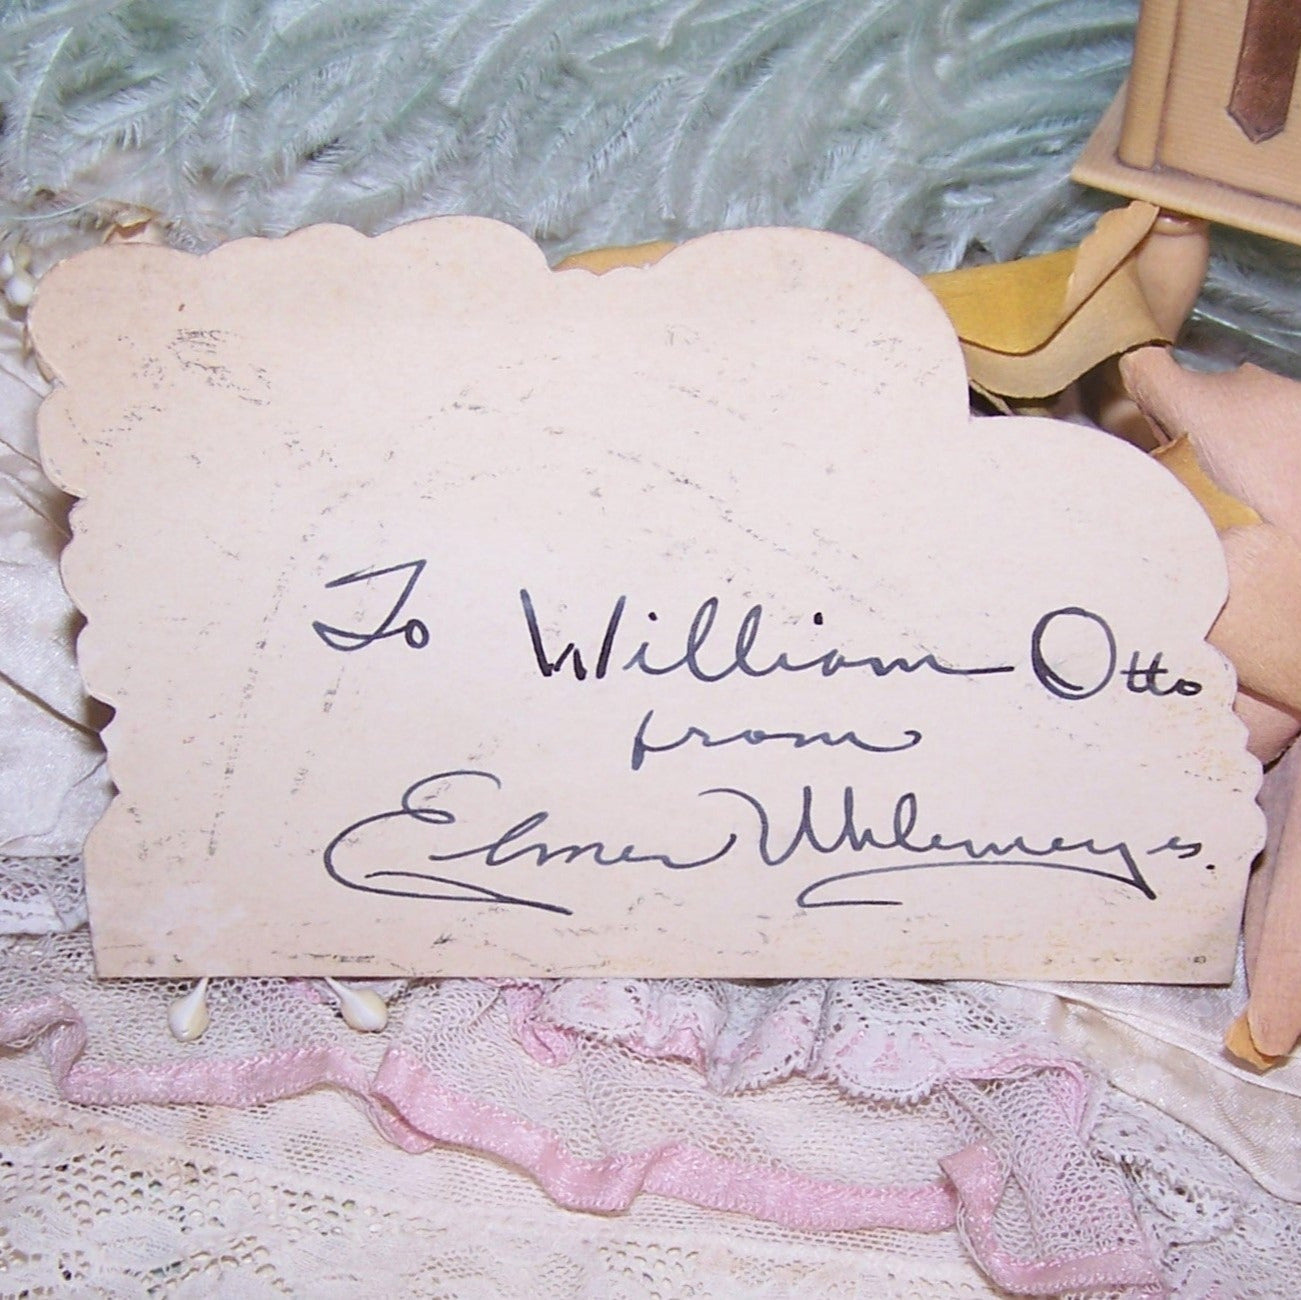 To William Otto
from
Elmer Uhlemeyer.